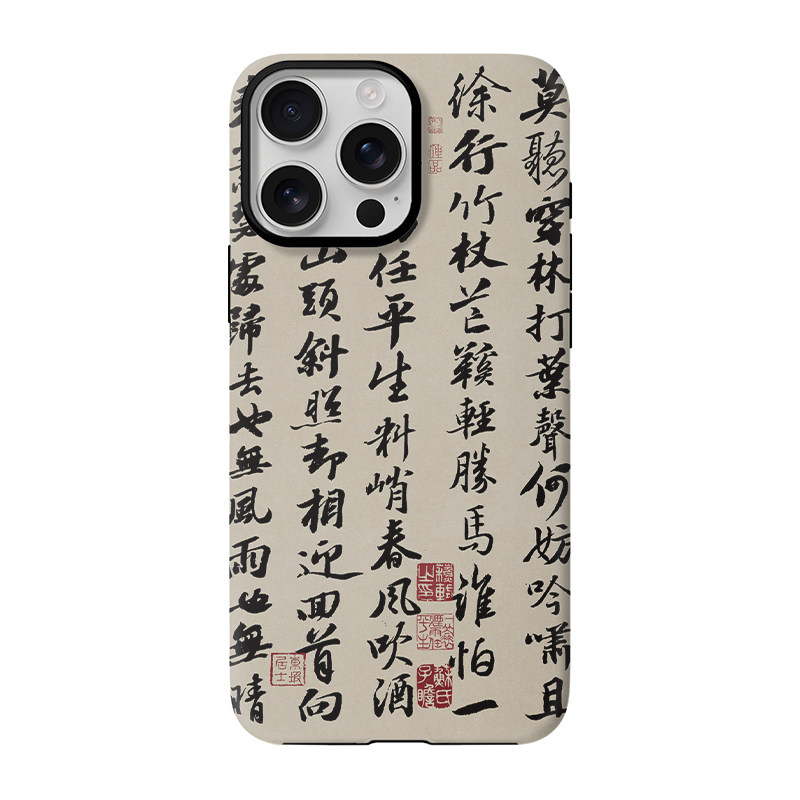 莫聽穿林打葉聲何妨吟嘯且
徐行竹杖芒鞵輕勝馬誰怕一
任平生料峭春風吹酒
山頭斜照却相迎回首向
處歸去也無風雨也無晴
蘇氏子瞻
東坡居士